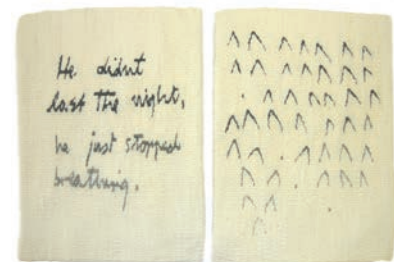 He didnt
last the night,
he just stopped
breathing.